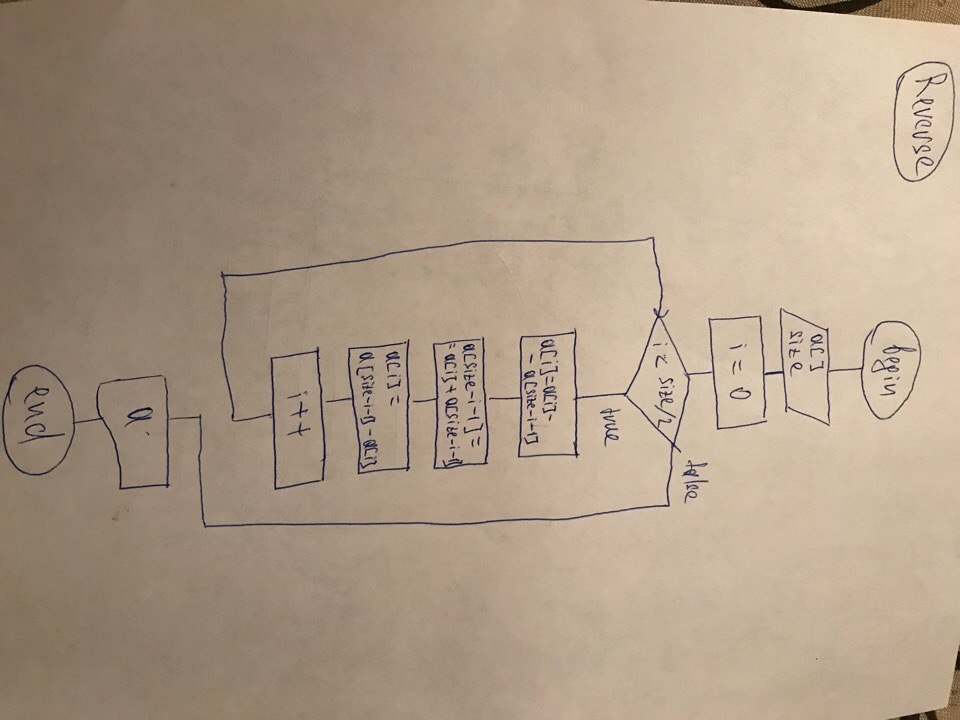 Reverse
begin
a[]
size
i = 0
i < size/2
false
true
a[i]=a[i]-
- a[size-i-1]
a[size-i-1] =
= a[i] + a[size-i-1]
a[i] =
a[size-i-1] - a[i]
i++
a
end